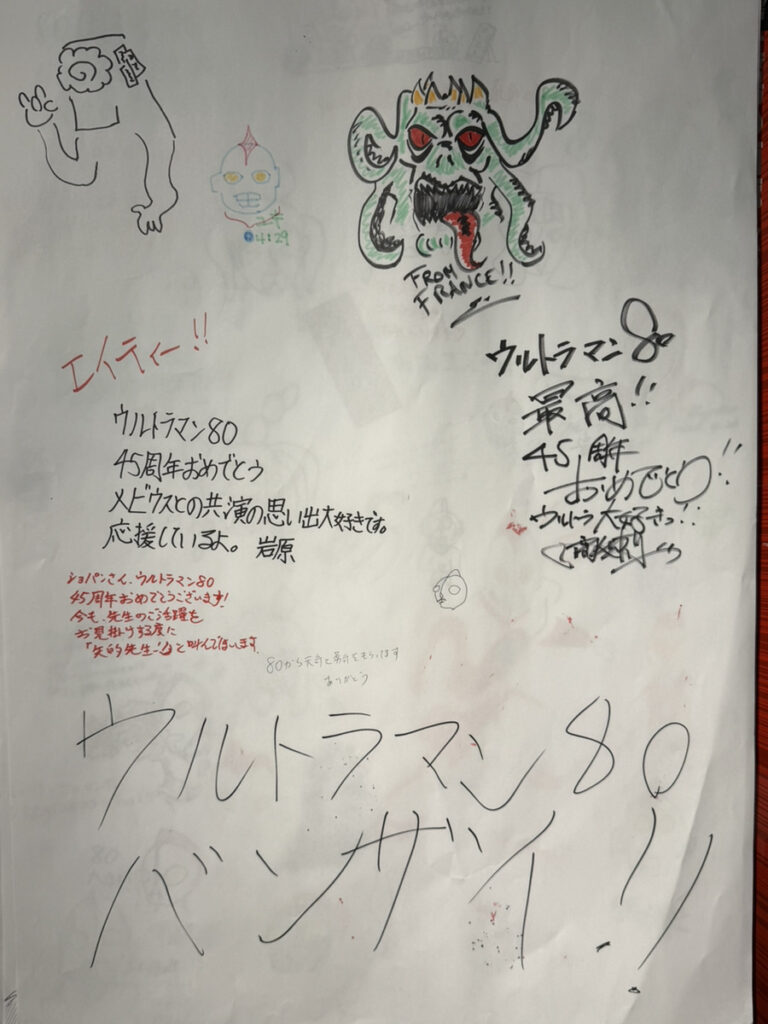 4:29
FROM
FRANCE!!
エイティー!!
ウルトラマン80
最高!!
45周年
おめでとう!!
ウルトラ大好きっ!!
ウルトラマン80
45周年おめでとう
メビウスとの共演の思い出大好きです。
応援しているよ。 岩原
ショパンさん、ウルトラマン80
45周年おめでとうございます!
今も、先生のご活躍を
お見掛けする度に
「矢的先生!」と叫んでいます
80から
ありがとう
ウルトラマン80
バンザイ!!